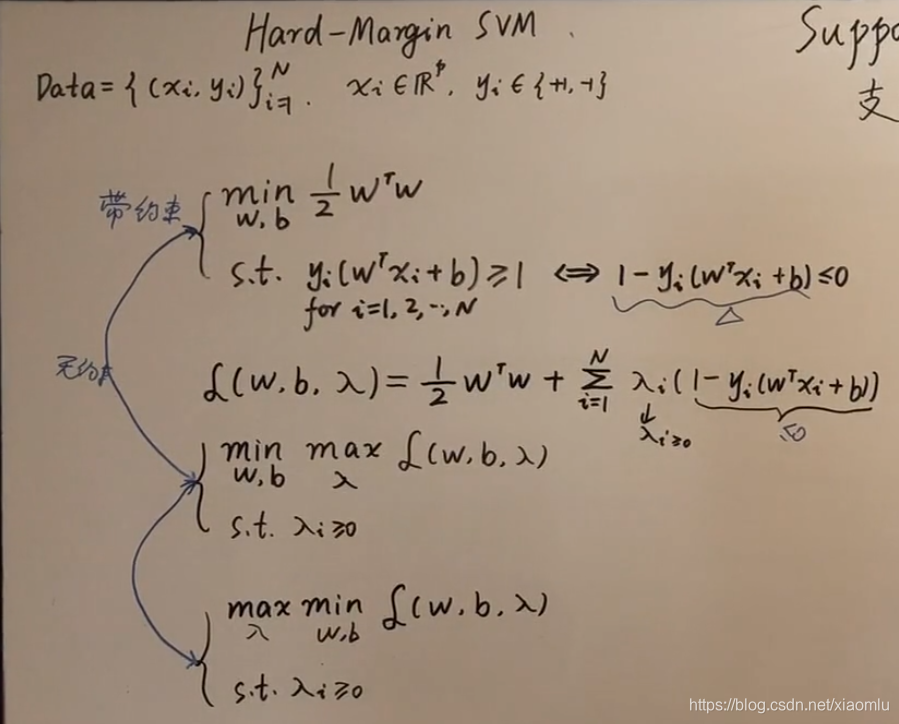 Hard-Margin SVM
Suppo
支
Data = {(xi, yi)}ᵢ₌₁ᴺ. xi ∈ ℝᵖ, yi ∈ {+1, -1}
带约束
min w,b 1/2 wᵀw
s.t. yi(wᵀxi + b) ≥ 1 ⇔ 1 - yi(wᵀxi + b) ≤ 0
for i=1, 2, ..., N
△
无约束
ℒ(w, b, λ) = 1/2 wᵀw + Σᵢ₌₁ᴺ λi(1 - yi(wᵀxi + b))
↓
λi≥0
≤0
min w,b max λ ℒ(w, b, λ)
s.t. λi ≥ 0
max λ min w,b ℒ(w, b, λ)
s.t. λi ≥ 0
https://blog.csdn.net/xiaomlu